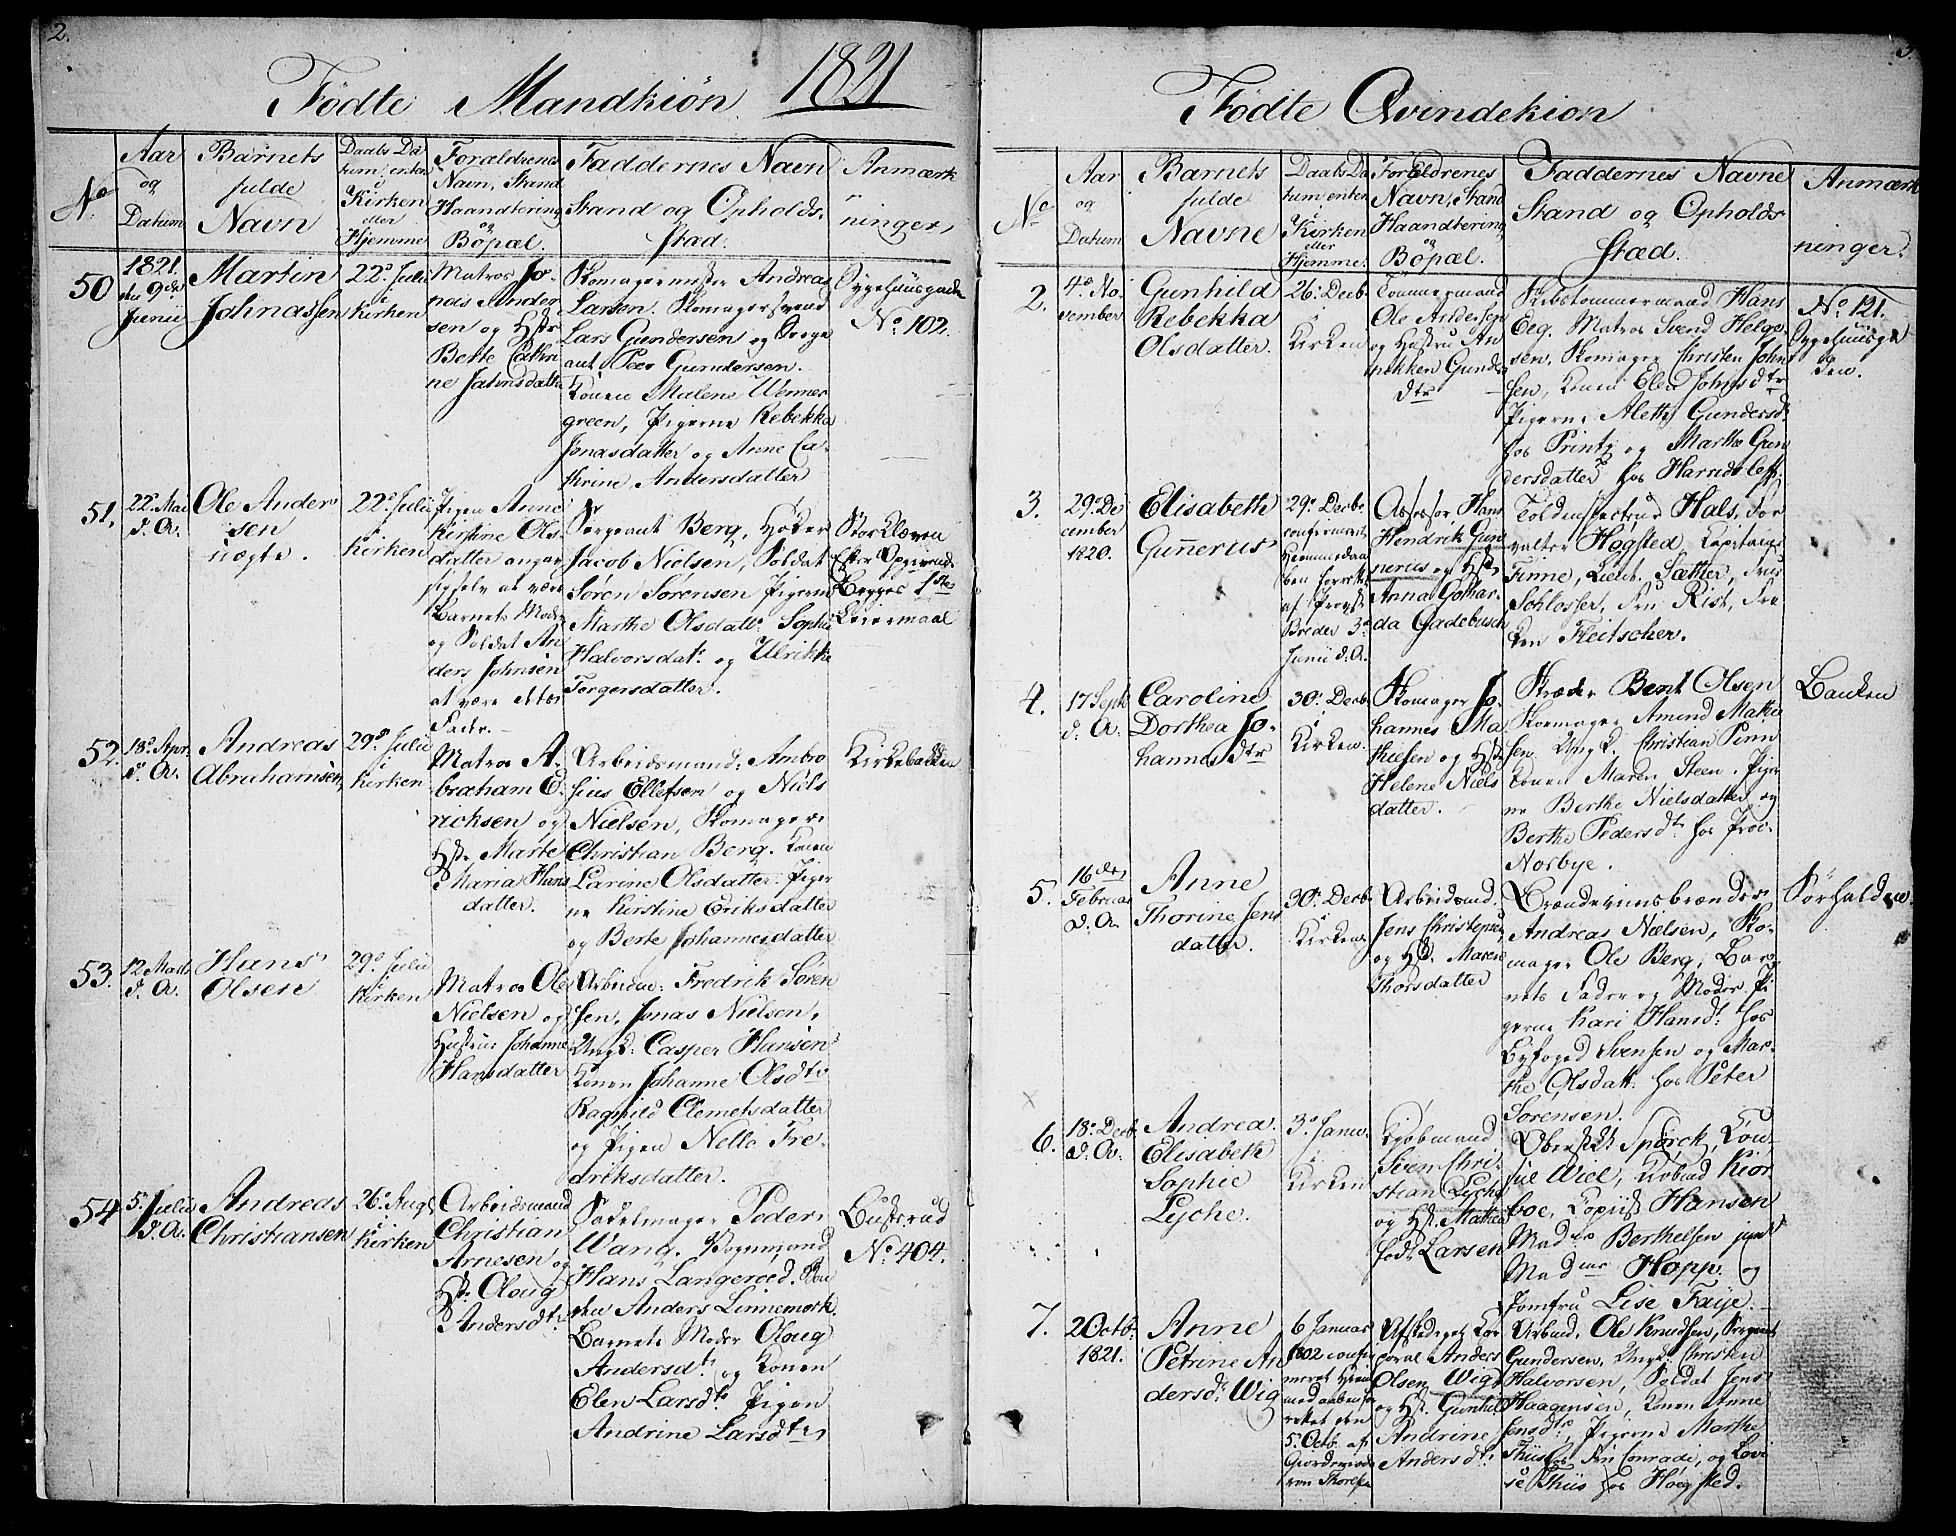 2.
Fødte Mandkiön. 1821
No
Aar
og
Datum
Barnets
fulde
Navn
Daabs Da
tum, enten
i
Kirken
eller
Hjemme
Forældrenes
Navn, Stand
Haandtering
og
Bopæl.
Faddernes Navn
Stand og Opholds.
stad.
Anmærk
ninger,
50
1821.
den 9de
Junii
Martin
Johnassen
22de Julii
i
Kirken
Matros Jo-
nas Ander
sen og Hstr
Berte Cathri
ne Jahnsdatter
Skomagermester Andreas
Larsen. Skomagersvend
Lars Gundersen og Serge
ant Peer Gundersen.
Konen Malene Wenner
green, Pigerne Rebekka
Jonasdatter og Anne Ca-
thrine Andersdatter
Sygehuusgaden
No. 102.
51,
22de Mai
d. A.
Ole Ander
sen
uægte.
22de Julii
i
Kirken
Pigen Anne
Kirstine Ols-
datter angav
sig selv at være
Barnets Moder
og Soldat An
ders Johnsen
at være dets
Fader.
Sergeant Berg, Høker
Jacob Nielsen, Soldat
Søren Sørensen Pigerne
Marthe Olsdatt. Sophie
Halvorsdatr. og Ulrikke
Torgersdatter.
Efter Opgivende
Begges 1ste
Leiermaal
52.
18de Apr.
d. A.
Andreas
Abrahamsen,
29de Julii
i
Kirken
Matros A-
braham E-
richsen og
Hstr. Marte
Maria Hans
datter.
Arbeidsmand. Ambro
sius Ellefsen og Niels
Nielsen, Skomager
Christian Berg. Konen
Larine Olsdatter. Piger
ne Kirstine Eriksdatter
og Berte Johannesdatter
Kirkebakken
53.
12 Marts
d. A.
Hans
Olsen
29de Julii
i
Kirken
Matros Ole
Nielsen og
Hustrue Johanne
Hansdatter
Arbeidsm. Fredrik Sören
sen, Jonas Nielsen,
Ungk: Casper Hansen
Konen Johanne Olsdtr
Ragnild Clemetsdatter
og Pigen Nelle Fre-
driksdatter.
54
5. Julii
d. A.
Andreas
Christiansen
26de Aug.
i
Kirken
Arbeidsmand
Christian
Arnesen og
Hstr. Oloug
Andersdtr.
Sadelmager Peder
Wang. Vognmand
Hans Langeroed. Bon
den Anders Linnemork.
Barnets Moder Oloug
Andersdtr. og Konen
Elen Larsdtr Pigen
Andrine Larsdtr,
Busterud
No. 404.
3.
Fødte Qvindekion
No
Aar
og
Datum
Barnets
fulde
Navne
Daabs Da
tum, enten
i
Kirken
eller
Hjemme.
Forældrenes
Navn, Stand
Haandtering
og
Bopæl.
Faddernes Navne
Stand og Opholds
Stæd.
Anmærk
ninger.
2.
4de No.
vember
Gunhild
Rebekka
Olsdatter.
26. Decb.
i
Kirken
Tömmermand
Ole Andersen
og Hustru An
nikken Gunders
dtr
Skibstömmermand Hans
Eeg. Matros Svend Helge
sen, Skomager Christen John
sen, Konen Elen Johnsdtr
Pigerne Alethe Gundersdr
hos Printz og Marthe Gun
dersdatter hos Harnisleff.
No. 121.
Sygehuusga
den.
3.
29de De
cember
1820.
Elisabeth
Guñerus
29de Decbr
confirmeret
Hiemmedaa
ben forrettet
af Provst
Breder 3de
Junii d. A.
Assessor, Hans
Hendrik Gun
nerus og Hstr
Anna Gothar-
da Gadebusch
Toldinspecteur Hals, For
valter Høgsted, Capitain
Finne, Lieut. Sætter, Frue
Schlosser, Fru Rist, Frö
ken Fleitscher.
4.
17 Septb
d. A.
Caroline
Dorthea Jo-
hannesdtr
30. Decb.
i
Kirken.
Skomager Jo-
hannes Ma
thiesen og Hstr
Helene Niels
datter.
Skræder Bent Olsen
Skomager Amund Mathie
sen, Ungk. Christian Finn
Konen Maren Steen. Piger
ne Berthe Nielsdatter og
Berthe Pedersdtr. hos Proc.
Norbye.
Banken
5.
16de
Februar
d. A.
Anne
Thorine Jens
datter.
30. Decb.
i
Kirken
Arbeidsmd.
Jens Christensen
og Hstr. Maren
Thorsdatter
Brændeviinsbrænder
Andreas Nielsen, Sko-
mager Ole Berg, Bar-
nets Fader og Moder. Pi
gerne Kari Hansdtr. hos
Byfoged Svensen og Mar-
the Olsdatt. hos Peter
Sørensen.
Sørhalden.
6.
18. Decb.
d. A.
Andrea
Elisabeth
Sophie
Lyche.
3de Janu.
i
Kirken
Kjøbmand
Sven Chri-
stian Lyche
og Hst. Mathea
föd Larsen
Oberstltn Spørck, Con-
sul Wiel, Kiøbmd Kior
boe, Copiist Hansen
Madme Berthelsen jun.
Madme Hopp og
Jomfru Lise Faye.
7.
2 Octb.
1821.
Anne
Petrine An
dersdr. Wig
6 Januar
1802 confir
meret Hiem
medaaben for
rettet den
5. Octb. af
Giordemode
ren Thorsen
Afskediget Cor
poral Anders
Olsen Wig
og Hst. Gunhild
Andrine
Andersdtr.
Arbmd. Ole Knudsen, Sergeant
Gundersen, Ungk: Christen
Halvorsen, Soldat Jens
Haagensen, Konen Anne
Jensdtr, Pigerne Marthe
Thiis hos Fru Conradi, og Lovi
se Thiis hos Høegsted.